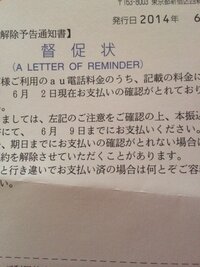 〒163-8003 東京都新宿区西
発行日 2014年 6
解除予告通知書】
督促状
(A LETTER OF REMINDER)
様ご利用のau電話料金のうち、記載の料金に
6月 2日現在お支払いの確認がとれており
ましては、左記のご注意をご確認の上、本振込
6月 9日までにお支払いください。
、期日までにお支払いの確認がとれない場合は
約を解除させていただくことがあります。
と行き違いでお支払い済の場合は何とぞご容
い。